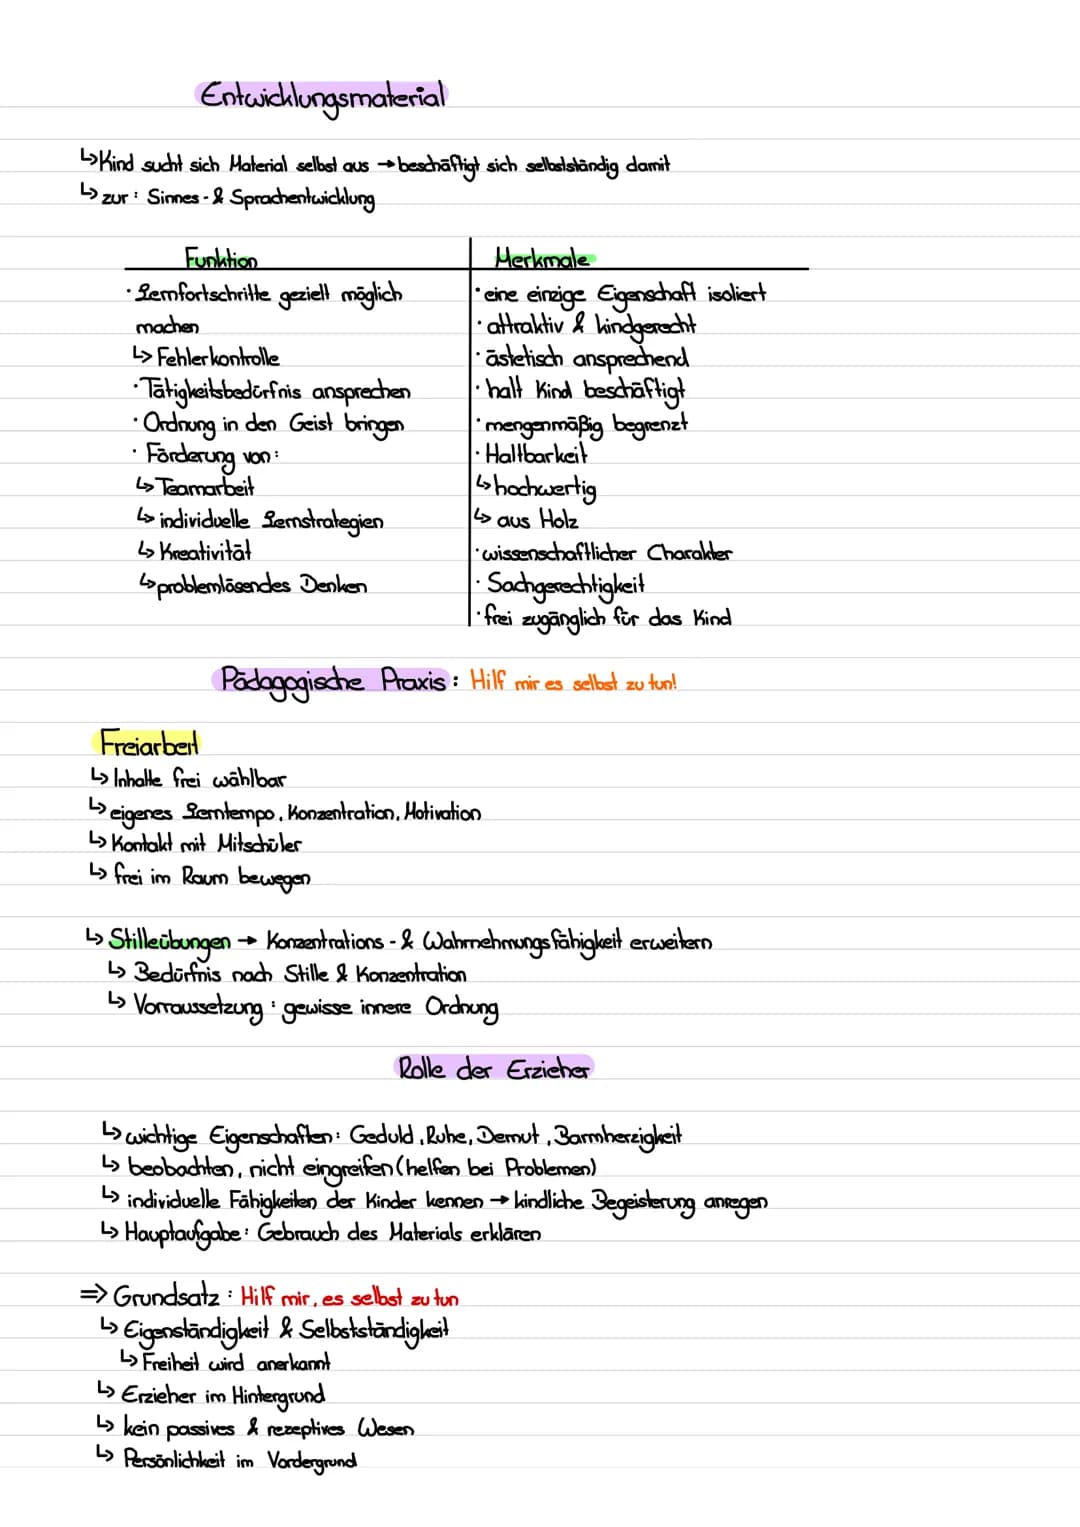 Entwicklungsmaterial
↳ Kind sucht sich Material selbst aus → beschäftigt sich selbstständig damit
↳ zur: Sinnes- & Sprachentwicklung
Funktion
· Lernfortschritte geziell möglich
machen
↳ Fehlerkontrolle
· Tätigkeitsbedürfnis ansprechen
· Ordnung in den Geist bringen
· Förderung von:
↳ Teamarbeit
↳ individuelle Lernstrategien
↳ Kreativität
↳ problemlösendes Denken
Merkmale
· eine einzige Eigenschaft isoliert
· attraktiv & kindgerecht
· ästetisch ansprechend
· halt Kind beschäftigt
· mengenmäßig begrenzt
· Haltbarkeit
↳ hochwertig
↳ aus Holz
· wissenschaftlicher Charakter
· Sachgerechtigkeit
· frei zugänglich für das Kind
Pädagogische Praxis: Hilf mir es selbst zu tun!
Freiarbeit
↳ Inhalte frei wählbar
↳ eigenes Lerntempo, Konzentration, Motivation
↳ Kontakt mit Mitschüler
↳ frei im Raum bewegen
↳ Stilleübungen → Konzentrations- & Wahrnehmungsfähigkeit erweitern
↳ Bedürfnis nach Stille & Konzentration
↳ Vorraussetzung: gewisse innere Ordnung
Rolle der Erzieher
↳ wichtige Eigenschaften: Geduld, Ruhe, Demut, Barmherzigkeit
↳ beobachten, nicht eingreifen (helfen bei Problemen)
↳ individuelle Fähigkeiten der Kinder kennen → kindliche Begeisterung anregen
↳ Hauptaufgabe: Gebrauch des Materials erklären
⇒ Grundsatz: Hilf mir, es selbst zu tun
↳ Eigenständigkeit & Selbstständigkeit
↳ Freiheit wird anerkannt
↳ Erzieher im Hintergrund
↳ kein passives & rezeptives Wesen
↳ Persönlichkeit im Vordergrund